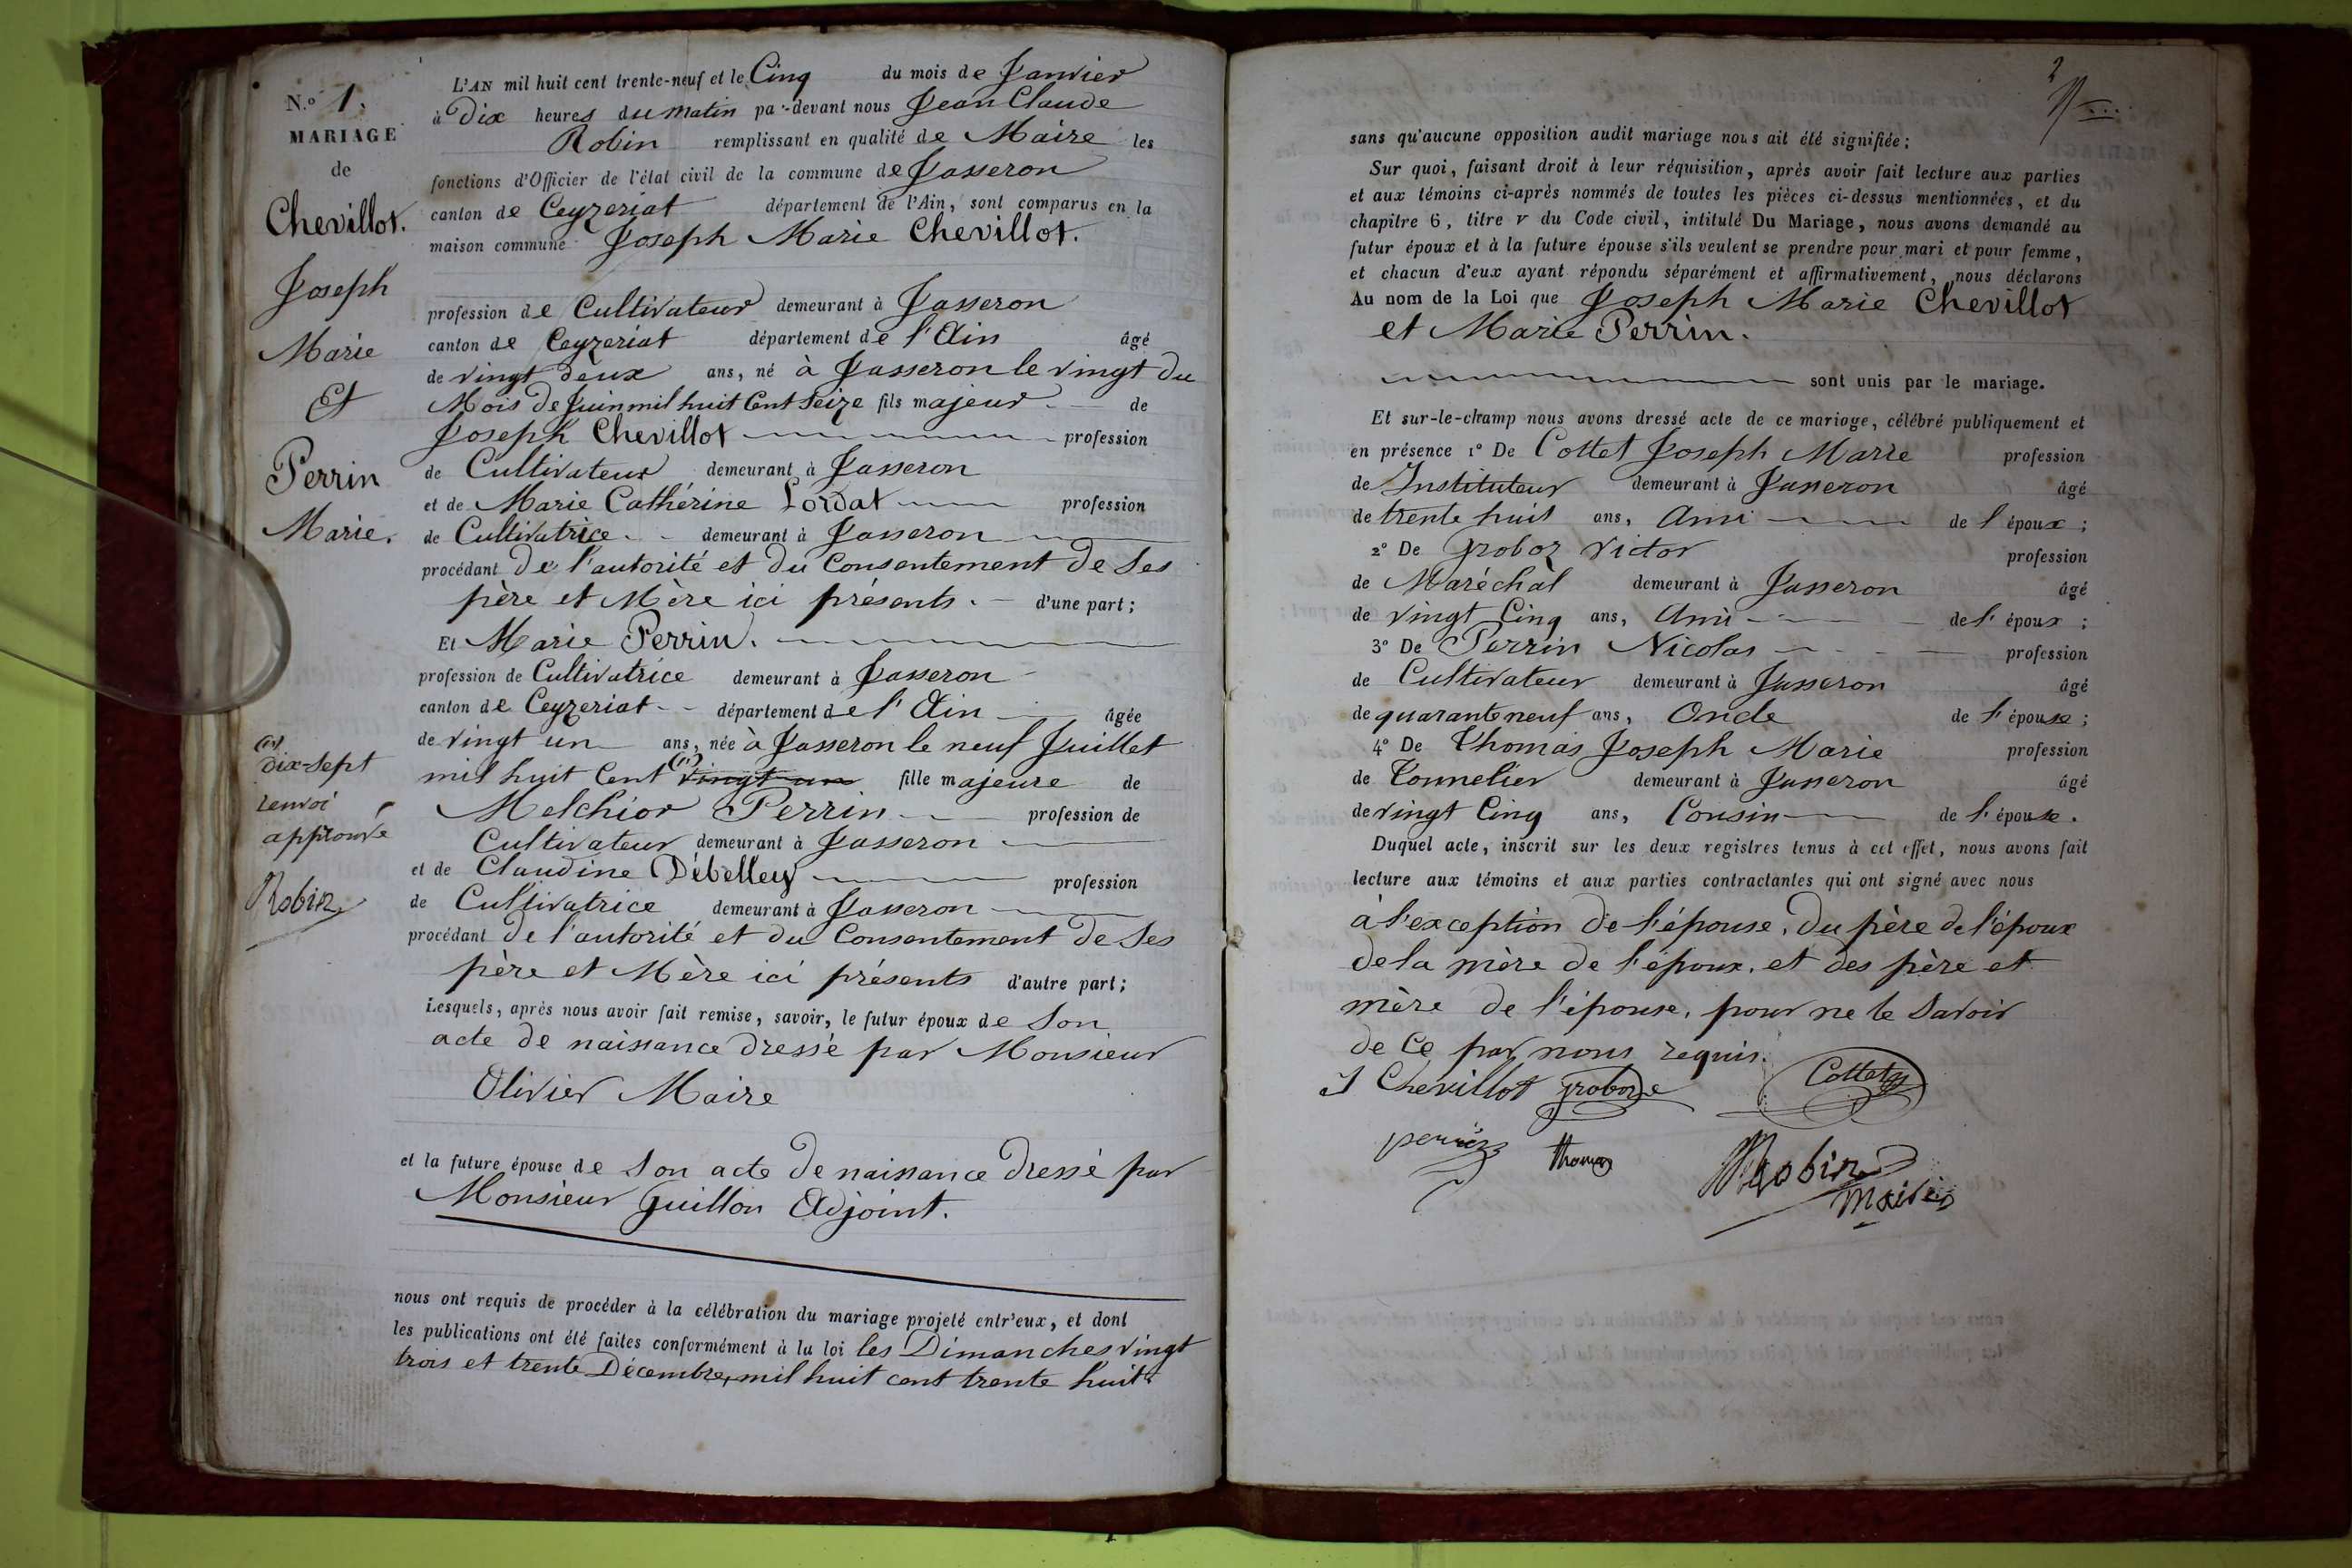 N.º 1.
MARIAGE
de
Chevillot.
Joseph
Marie
Et
Perrin
Marie.
(1)
dix-sept
renvoi
approuvé
Robin
L'AN mil huit cent trente-neuf et le Cinq du mois de Janvier
à Dix heures du matin par-devant nous Jean Claude
Robin remplissant en qualité de Maire les
fonctions d'Officier de l'état civil de la commune de Jasseron
canton de Ceyzeriat département de l'Ain, sont comparus en la
maison commune Joseph Marie Chevillot.
profession de Cultivateur demeurant à Jasseron
canton de Ceyzeriat département de l'Ain âgé
de vingt deux ans, né à Jasseron le vingt du
Mois de Juin mil huit Cent Seize fils majeur de
Joseph Chevillot profession
de Cultivateur demeurant à Jasseron
et de Marie Cathérine Lordat profession
de Cultivatrice demeurant à Jasseron
procédant De l'autorité et du Consentement De Ses
père et Mère ici présents. d'une part;
Et Marie Perrin.
profession de Cultivatrice demeurant à Jasseron
canton de Ceyzeriat département de l'Ain âgée
de vingt un ans, née à Jasseron le neuf Juillet
mil huit Cent (1) vingt un fille majeure de
Melchior Perrin profession de
Cultivateur demeurant à Jasseron
et de Claudine Débelley profession
de Cultivatrice demeurant à Jasseron
procédant De l'autorité et du Consentement De Ses
père et Mère ici présents d'autre part;
Lesquels, après nous avoir fait remise, savoir, le futur époux de Son
acte de naissance dressé par Monsieur
Olivier Maire
et la future épouse de Son acte De naissance dressé par
Monsieur Guillon Adjoint.
nous ont requis de procéder à la célébration du mariage projeté entr'eux, et dont
les publications ont été faites conformément à la loi les Dimanches vingt
trois et trente Décembre, mil huit cent trente huit
2
sans qu'aucune opposition audit mariage nous ait été signifiée;
Sur quoi, faisant droit à leur réquisition, après avoir fait lecture aux parties
et aux témoins ci-après nommés de toutes les pièces ci-dessus mentionnées, et du
chapitre 6, titre v du Code civil, intitulé Du Mariage, nous avons demandé au
futur époux et à la future épouse s'ils veulent se prendre pour mari et pour femme,
et chacun d'eux ayant répondu séparément et affirmativement, nous déclarons
Au nom de la Loi que Joseph Marie Chevillot
et Marie Perrin.
sont unis par le mariage.
Et sur-le-champ nous avons dressé acte de ce mariage, célébré publiquement et
en présence 1º De Cottet Joseph Marie profession
de Instituteur demeurant à Jasseron âgé
de trente huit ans, Ami de l'époux;
2º De Groboz Victor profession
de Maréchal demeurant à Jasseron âgé
de vingt Cinq ans, Ami de l'époux;
3º De Perrin Nicolas profession
de Cultivateur demeurant à Jasseron âgé
de quarante neuf ans, Oncle de l'épouse;
4º De Thomas Joseph Marie profession
de Tonnelier demeurant à Jasseron âgé
de vingt Cinq ans, Cousin de l'épouse.
Duquel acte, inscrit sur les deux registres tenus à cet effet, nous avons fait
lecture aux témoins et aux parties contractantes qui ont signé avec nous
à l'exception de l'épouse, du père de l'époux
de la mère de l'époux, et des père et
mère de l'épouse, pour ne le Savoir
de Ce par nous requis.
J Chevillot Groboz Cottet
perrin Thomas Robin
Maire